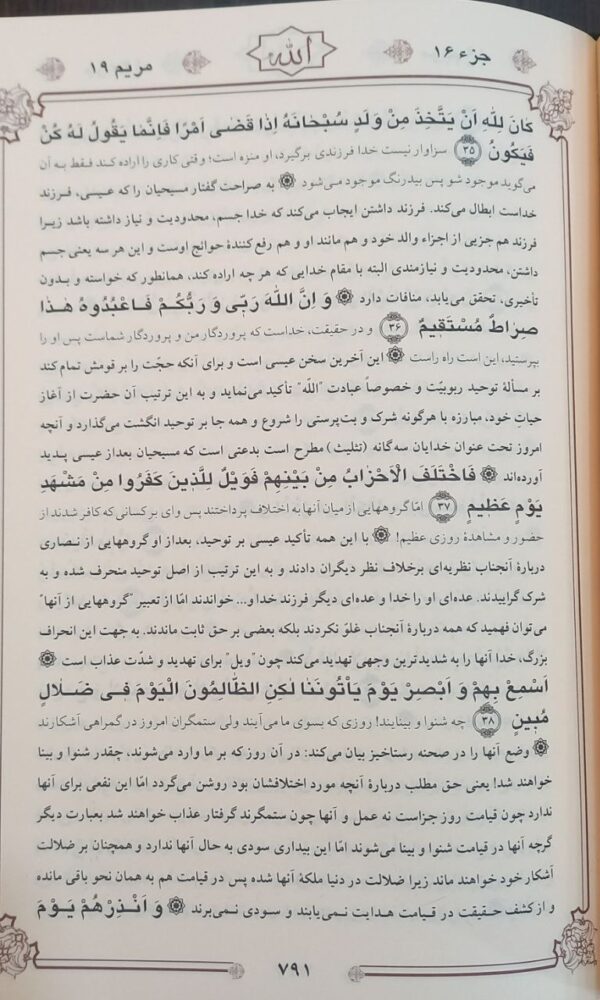 جزء ۱۶
الله
مریم ۱۹
كَانَ لِلّٰهِ اَنْ يَتَّخِذَ مِنْ وَلَدٍ سُبْحَانَهُ اِذَا قَضٰى اَمْرًا فَاِنَّمَا يَقُولُ لَهُ كُنْ
فَيَكُونُ ﴿۳۵﴾ سزاوار نیست خدا فرزندی برگیرد، او منزه است؛ وقتی کاری را اراده کند فقط به آن
می‌گوید موجود شو پس بیدرنگ موجود می‌شود ۞ به صراحت گفتار مسیحیان را که عیسی، فرزند
خداست ابطال می‌کند. فرزند داشتن ایجاب می‌کند که خدا جسم، محدودیت و نیاز داشته باشد زیرا
فرزند هم جزیی از اجزاء والد خود و هم مانند او و هم رفع کنندهٔ حوائج اوست و این هر سه یعنی جسم
داشتن، محدودیت و نیازمندی البته با مقام خدایی که هر چه اراده کند، همانطور که خواسته و بدون
تأخیری، تحقق می‌یابد، منافات دارد ۞ وَ اِنَّ اللّٰهَ رَبّى وَ رَبُّكُمْ فَاعْبُدُوهُ هٰذَا
صِرَاطٌ مُسْتَقيمٌ ﴿۳۶﴾ و در حقیقت، خداست که پروردگار من و پروردگار شماست پس او را
بپرستید، این است راه راست ۞ این آخرین سخن عیسی است و برای آنکه حجّت را بر قومش تمام کند
بر مسألهٔ توحید ربوبیّت و خصوصاً عبادت "اللّه" تأکید می‌نماید و به این ترتیب آن حضرت از آغاز
حیات خود، مبارزه با هرگونه شرک و بت‌پرستی را شروع و همه جا بر توحید انگشت می‌گذارد و آنچه
امروز تحت عنوان خدایان سه‌گانه (تثلیث) مطرح است بدعتی است که مسیحیان بعداز عیسی پدید
آورده‌اند ۞ فَاخْتَلَفَ الْاَحْزَابُ مِنْ بَيْنِهِمْ فَوَيْلٌ لِلَّذينَ كَفَرُوا مِنْ مَشْهَدِ
يَوْمٍ عَظيمٍ ﴿۳۷﴾ امّا گروههایی از میان آنها به اختلاف پرداختند پس وای بر کسانی که کافر شدند از
حضور و مشاهدهٔ روزی عظیم! ۞ با این همه تأکید عیسی بر توحید، بعداز او گروههایی از نصاری
دربارهٔ آنجناب نظریه‌ای برخلاف نظر دیگران دادند و به این ترتیب از اصل توحید منحرف شده و به
شرک گراییدند. عده‌ای او را خدا و عده‌ای دیگر فرزند خدا و... خواندند امّا از تعبیر "گروههایی از آنها"
می‌توان فهمید که همه دربارهٔ آنجناب غلوّ نکردند بلکه بعضی بر حق ثابت ماندند. به جهت این انحراف
بزرگ، خدا آنها را به شدیدترین وجهی تهدید می‌کند چون "ویل" برای تهدید و شدّت عذاب است ۞
اَسْمِعْ بِهِمْ وَ اَبْصِرْ يَوْمَ يَاْتُونَنَا لٰكِنِ الظَّالِمُونَ الْيَوْمَ فى ضَلَالٍ
مُبينٍ ﴿۳۸﴾ چه شنوا و بینایند! روزی که بسوی ما می‌آیند ولی ستمگران امروز در گمراهی آشکارند
۞ وضع آنها را در صحنه رستاخیز بیان می‌کند: در آن روز که بر ما وارد می‌شوند، چقدر شنوا و بینا
خواهند شد! یعنی حق مطلب دربارهٔ آنچه مورد اختلافشان بود روشن می‌گردد امّا این نفعی برای آنها
ندارد چون قیامت روز جزاست نه عمل و آنها چون ستمگرند گرفتار عذاب خواهند شد بعبارت دیگر
گرچه آنها در قیامت شنوا و بینا می‌شوند امّا این بیداری سودی به حال آنها ندارد و همچنان بر ضلالت
آشکار خود خواهند ماند زیرا ضلالت در دنیا ملکهٔ آنها شده پس در قیامت هم به همان نحو باقی مانده
و از کشف حقیقت در قیامت هدایت نمی‌یابند و سودی نمی‌برند ۞ وَ اَنْذِرْهُمْ يَوْمَ
۷۹۱